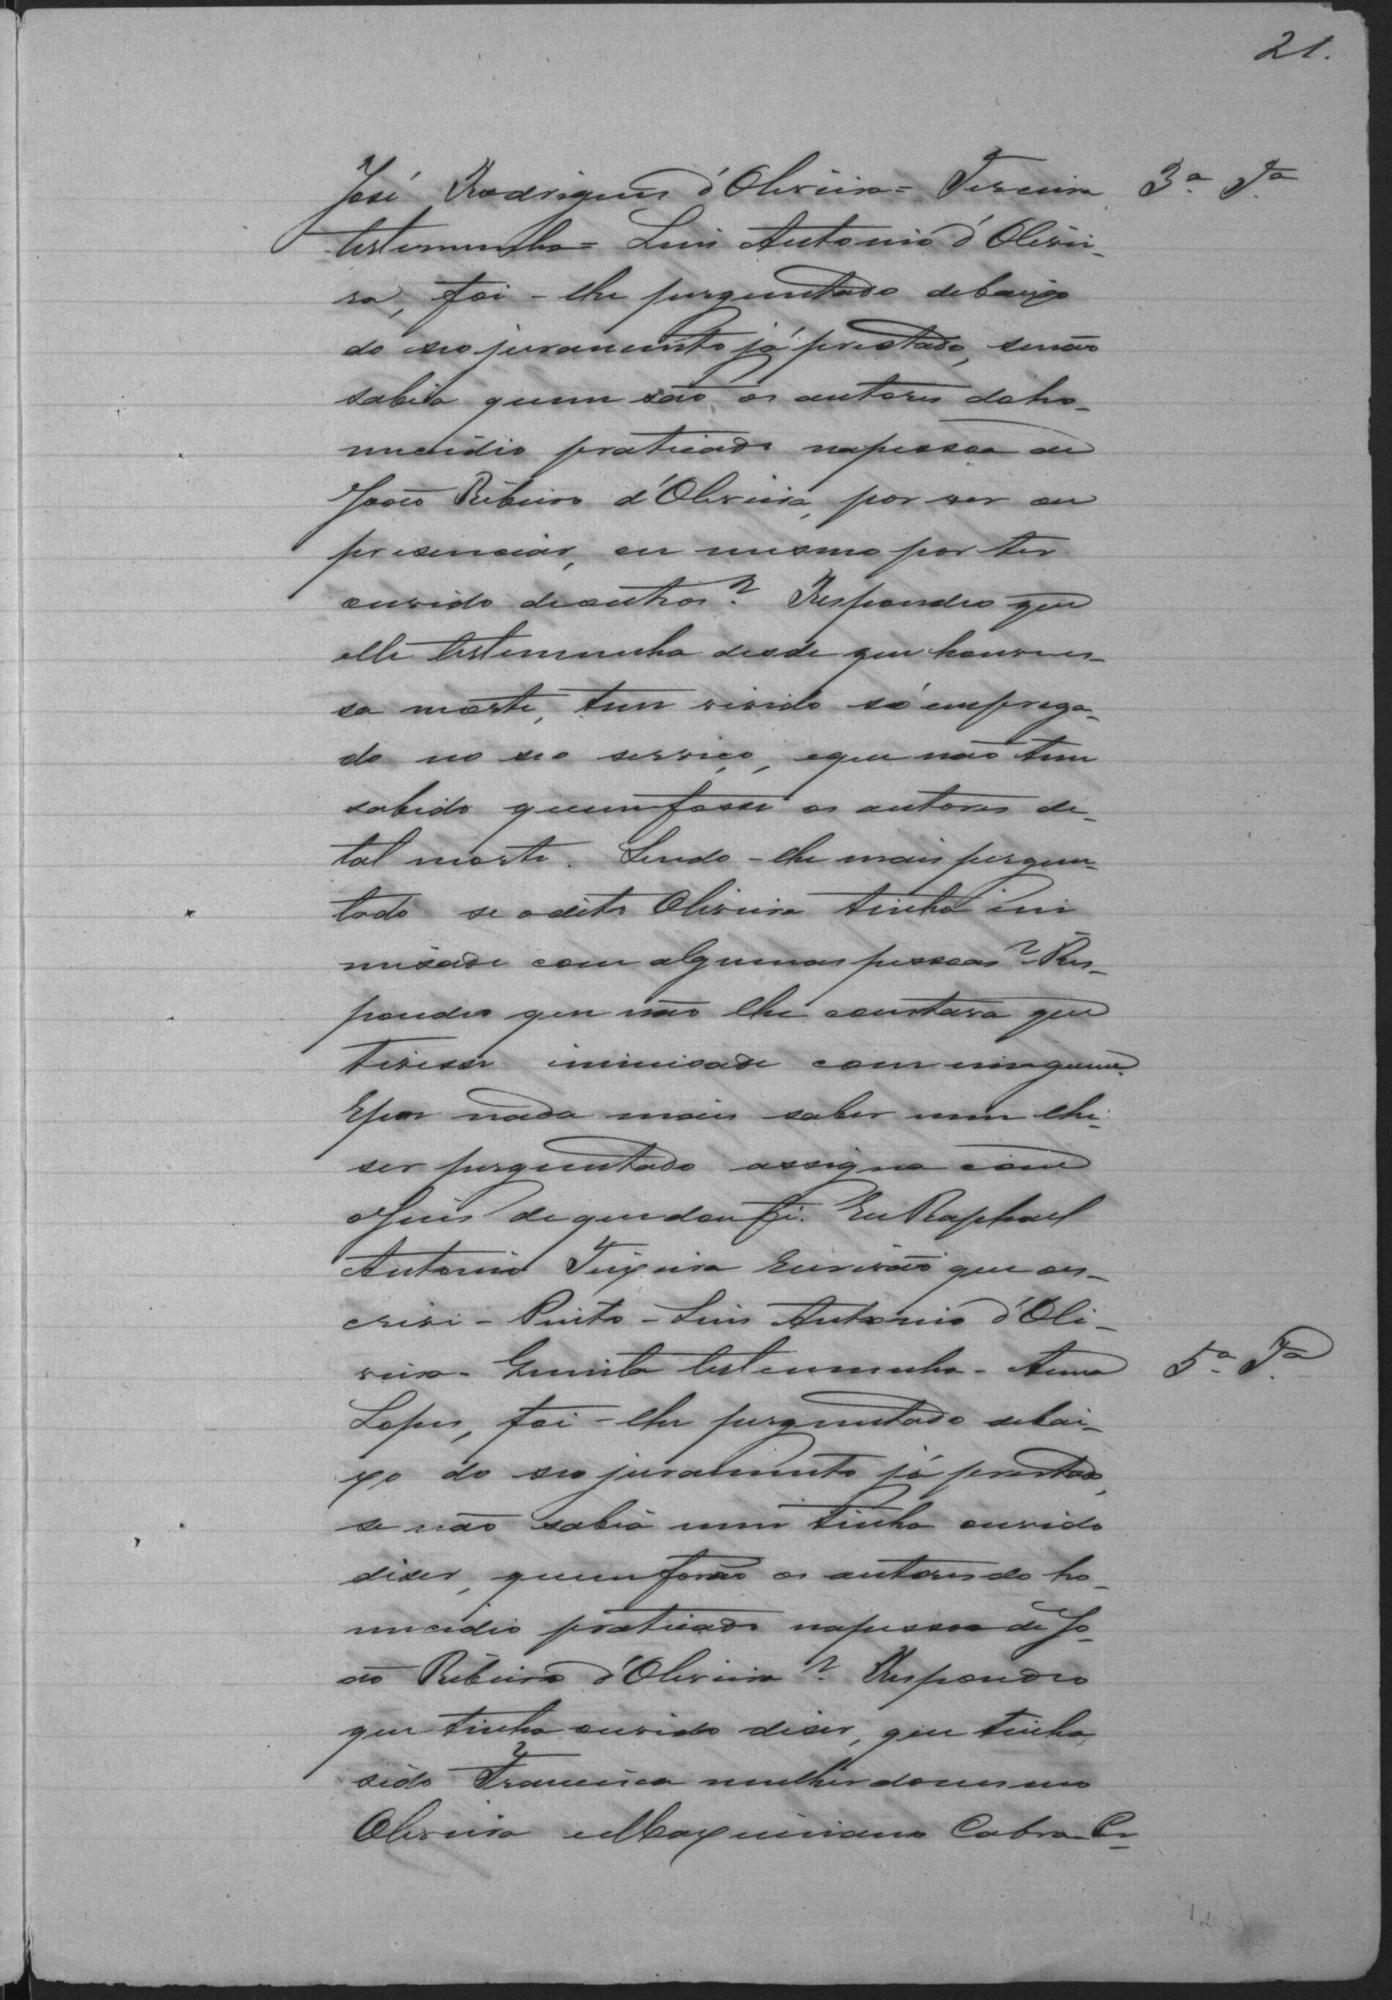 21.
José Rodrigues d'Oliveira = Terceira 3.ª T.ª
testemunha = Luis Antonio d'Olivei-
ra, foi-lhe perguntado debaixo
do seo juramento já prestado, se não
sabia quem são os autores do ho-
micidio praticado na pessoa de
João Ribeiro d'Oliveira, por ver ou
presenciar, ou mesmo por ter
ouvido de outros? Respondeo que
elle testemunha desde que houve es-
sa morte, tem vivido só emprega-
do no seo serviço, e que não tem
sabido quem fosse os autores de
tal morte. Sendo-lhe mais pergun-
tado se o dito Oliveira tinha ini
misade com algumas pessoas? Res-
pondeo que não lhe constava que
tivesse inimisade com ninguem.
E por nada mais saber nem lhe
ser perguntado assigna com o
Juis do que dou fé. Eu Raphael
Antonio Teixeira Escrivão que es-
crivi - Pinto - Luis Antonio d'Oli-
veira - Quinta testemunha - Anna 5.ª T.ª
Lopes, foi-lhe perguntado debai-
xo do seo juramento já prestado,
se não sabia nem tinha ouvido
diser, quem forão os autores do ho-
micidio praticado na pessoa de Jo-
ão Ribeiro d'Oliveira? Respondeo
que tinha ouvido diser, que tinha
sido Francisca mulher do mesmo
Oliveira e Maximiano Cabra Cr-